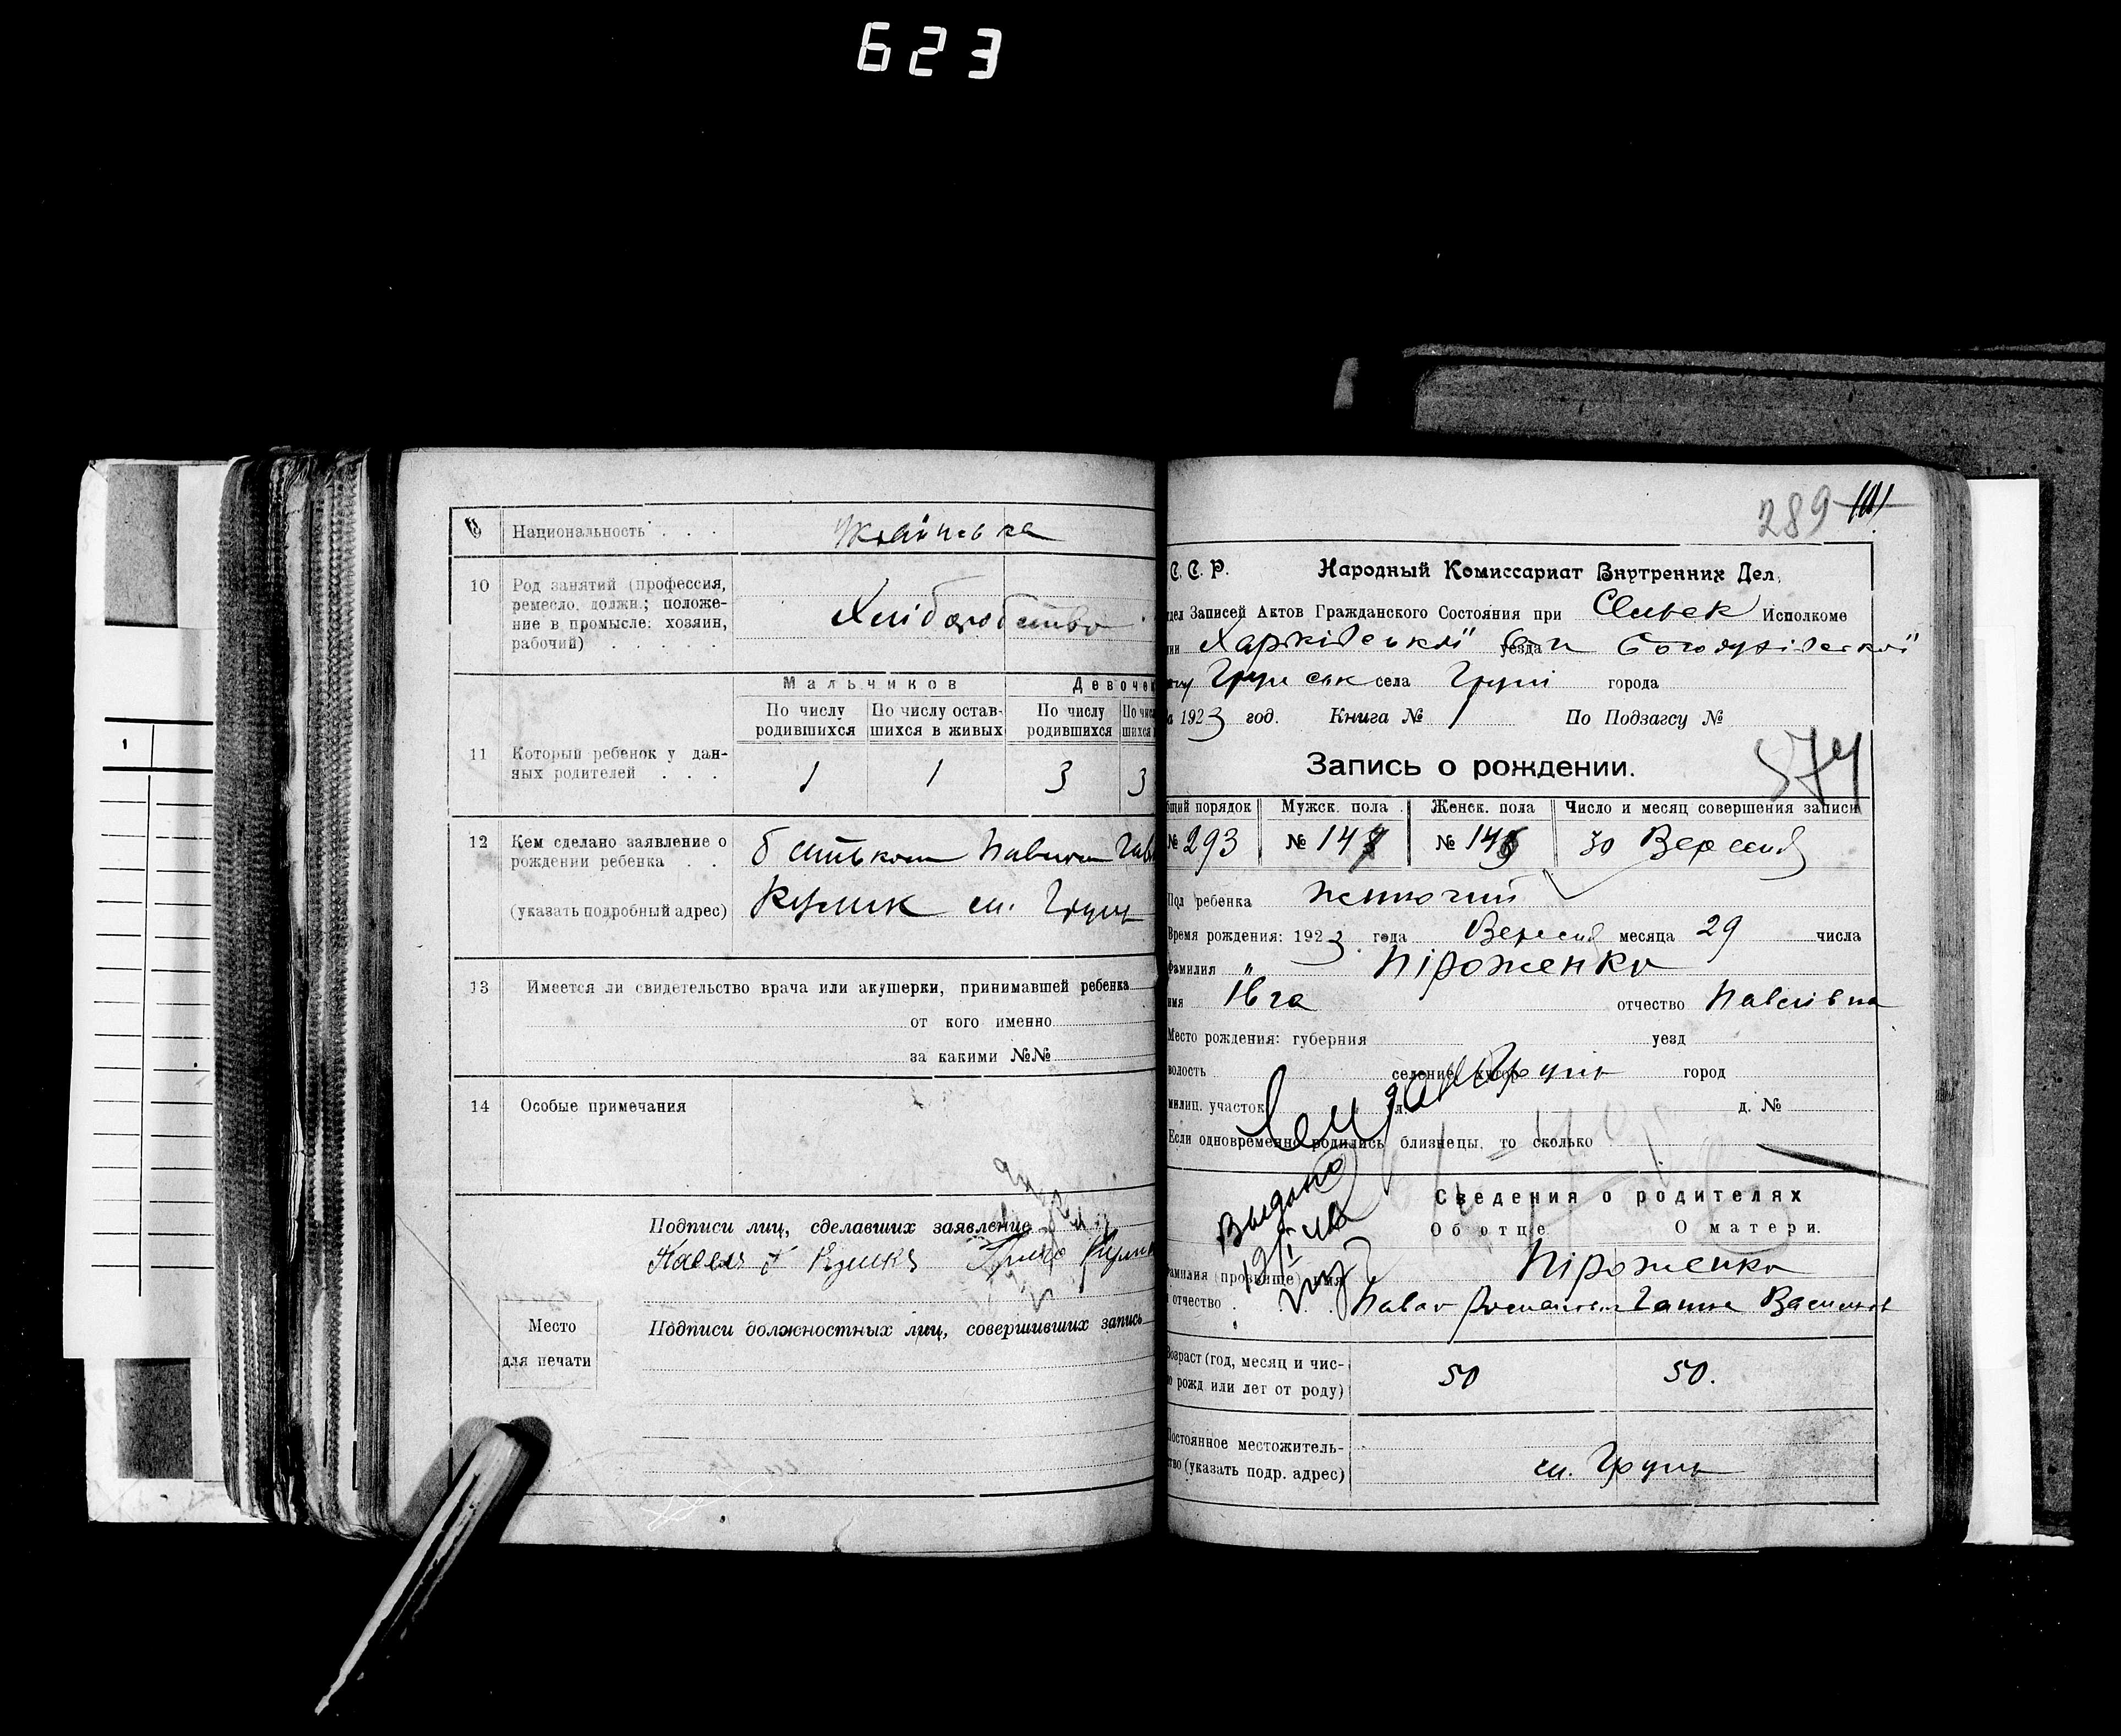 623
9 Национальность . . . Українська
10 Род занятий (профессия,
ремесло, должн.; положе-
ние в промысле: хозяин,
рабочий) . . . . .
Хліборобство
Мальчиков Девочек
По числу родившихся По числу остав-шихся в живых По числу родившихся
11 Который ребенок у дан-
ных родителей . . .
1 1 3 3
12 Кем сделано заявление о
рождении ребенка . .
батьком Павлом
(указать подробный адрес)
Кулик сл. Грунь
13 Имеется ли свидетельство врача или акушерки, принимавшей ребенка
от кого именно
за какими №№
14 Особые примечания
Подписи лиц, сделавших заявление
Место
для печати
Подписи должностных лиц, совершивших запись
289 101
С. С. Р. Народный Комиссариат Внутренних Дел,
Записей Актов Гражданского Состояния при Исполкоме
Харківської уезда Богодухівської
села Груні города
1923 год. Книга № 1 По Подзагсу №
574
Запись о рождении.
порядок Мужск. пола Женск. пола Число и месяц совершения записи
№ 293 № 147 № 146 30 Вересня
Пол ребенка жіночий
Время рождения: 1923 года Вересня месяца 29 числа
фамилия Пироженко
имя Івга отчество Павлівна
Место рождения: губерния уезд
волость селение, хутор Грунь город
милиц. участок ул. д. №
Если одновременно родились близнецы, то сколько
Выдано
Сведения о родителях
Об отце О матери.
Фамилия (прозвище) имя Пироженко
и отчество Павло Ганна
Возраст (год, месяц и чис-
ло рожд или лет от роду)
50 50.
Постоянное местожитель-
ство (указать подр. адрес)
сл. Грунь
1